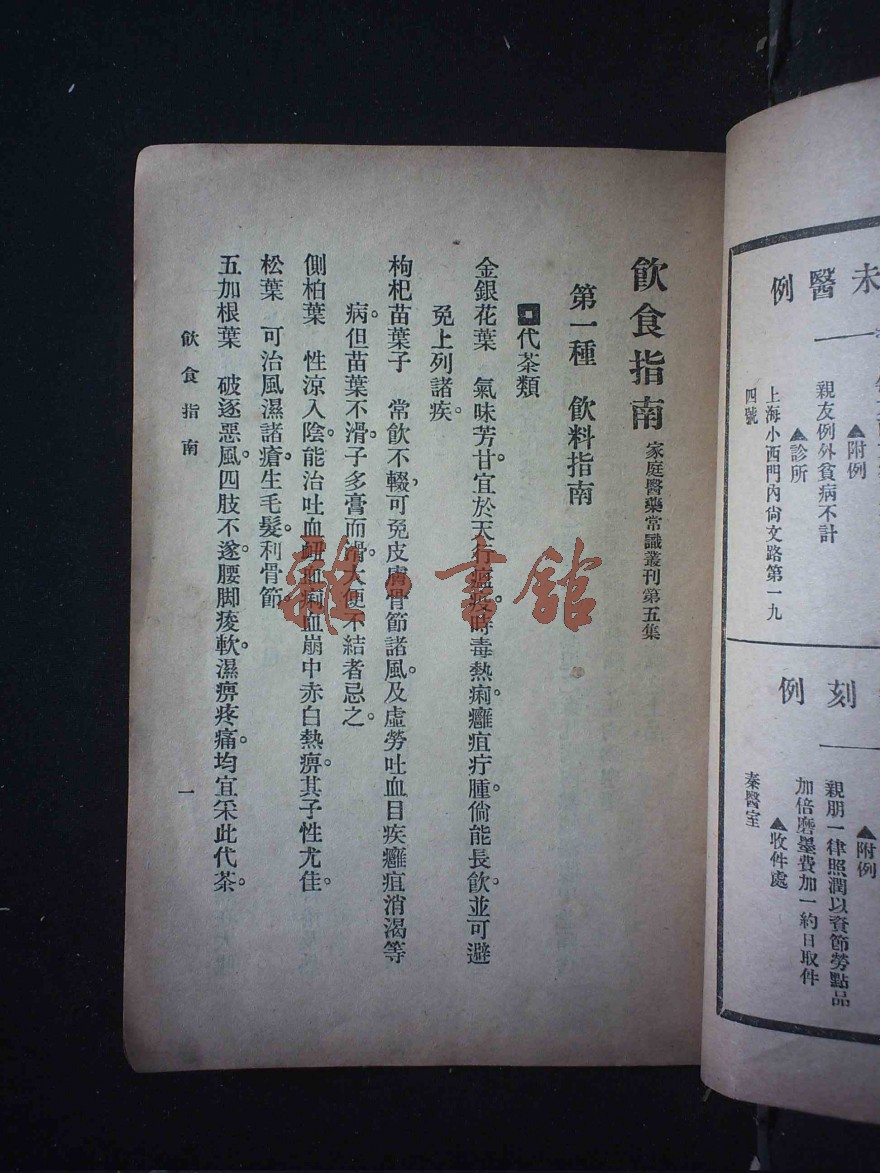 飲食指南 家庭醫藥常識叢刊第五集
第一種 飲料指南
代茶類
金銀花葉 氣味芳甘宜於天行瘟疫時毒熱痢癰疽疔腫。倘能長飲。並可避
免上列諸疾。
枸杞苗葉子 常飲不輟，可免皮膚骨節諸風。及虛勞吐血目疾癰疽消渴等
病。但苗葉不滑。子多膏而滑。大便不結者忌之。
側柏葉 性涼入陰。能治吐血衄血痢血崩中赤白熱痹。其子性尤佳。
松葉 可治風濕諸瘡。生毛髮。利骨節。
五加根葉 破逐惡風。四肢不遂。腰脚痠軟。濕痹疼痛。均宜采此代茶。
飲食指南
一
雜·書館
未醫例
▲附例
親友例外貧病不計
▲診所
上海小西門內尙文路第一九
四號
刻例
▲附例
親朋一律照潤以資節勞點品
加倍磨墨費加一約日取件
▲收件處
秦醫室